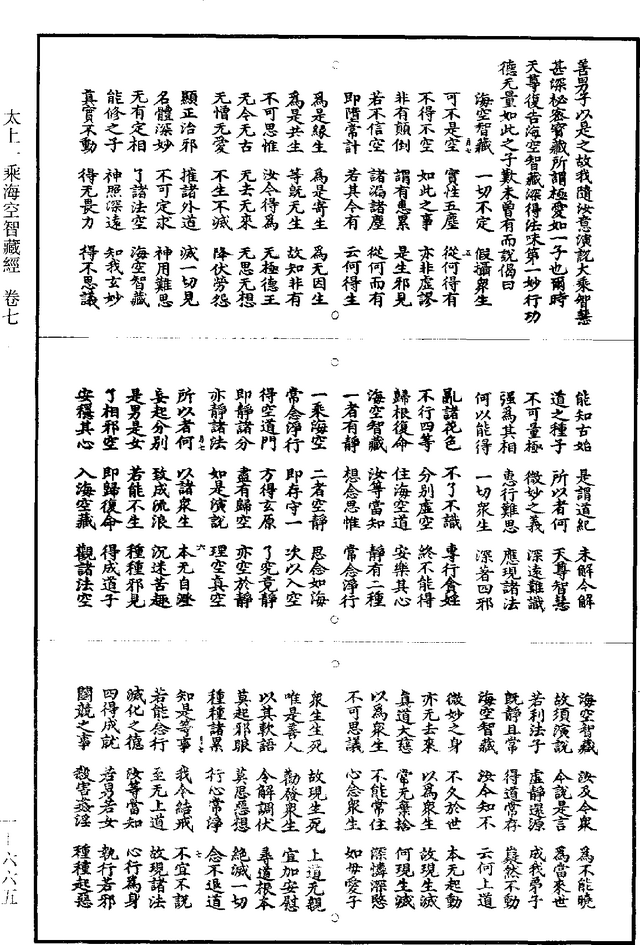 善男子以是之故我隨汝意演說大乘智慧
甚深祕密寶藏所謂極愛如一子也爾時
天尊復告海空智藏深得法味第一妙行功
德无量如此之子歎未曾有而說偈曰
海空智藏 一切不定 假攝衆生
可不是空 實性五塵 從何得有
不得不空 如此之事 亦非虛謬
非有顛倒 謂有惠累 是生邪見
若不信空 諸漏諸塵 從何而有
即墮常計 若其今有 云何得生
爲是緣生 爲是寄生 爲无因生
爲是共生 等旣无生 故知非有
不可思惟 汝今得爲 无極德王
无今无古 无去无來 无思无想
无憎无愛 不生不滅 降伏勞怨
顯正治邪 摧諸外道 滅一切見
名體深妙 不可定求 神用難思
无有定相 了諸法空 海空智藏
能修之子 神照深遠 知我玄妙
真實不動 得无畏力 得不思議
能知古始 是謂道紀 未解今解
道之種子 所以者何 天尊智慧
不可量極 微妙之義 深遠難識
强爲其相 惠行難思 應現諸法
何以能得 一切衆生 深著四邪
亂諸花色 不了不識 專行貪婬
不行四等 分別虛空 終不能得
歸根復命 住海空道 安樂其心
海空智藏 汝等當知 靜有二種
一者有靜 想念思惟 常念淨行
一乘海空 二者空靜 思念如海
常念淨行 即存守一 次以入空
得空道門 方得玄原 了究竟靜
即靜諸分 盡有歸空 亦空於靜
亦靜諸法 如是演說 理空真空
所以者何 以諸衆生 本无自澄
妄起分別 致成流浪 沉迷苦趣
是男是女 若能不生 種種邪見
了相邪空 即歸復命 得成道子
安穩其心 入海空藏 觀諸法空
海空智藏 汝及今衆 爲不能曉
故須演說 今說是言 爲當來世
若利法子 虛靜還源 成我弟子
旣靜且常 得道常存 嶷然不動
海空智藏 汝今知不 云何上道
微妙之身 不久於世 本无起動
亦无去來 以爲衆生 故現生滅
真道大慈 常无棄捨 何現生滅
以爲衆生 不能常住 深憐深愍
不可思議 心念衆生 如母愛子
衆生生死 故現生死 上道无親
唯是善人 勸發衆生 宜加安慰
以其軟語 令解調伏 尋道根本
莫起邪眼 莫思惡想 絕滅一切
種種諸累 行心常淨 念不退道
知是等事 我今結戒 不宜不說
若能念行 至无上道 故現諸法
滅化之德 汝等當知 心行爲身
四得成就 若男若女 執行若邪
鬪競之事 殺害恣淫 種種起惡
太上一乘海空智藏經 卷七
一-六六五